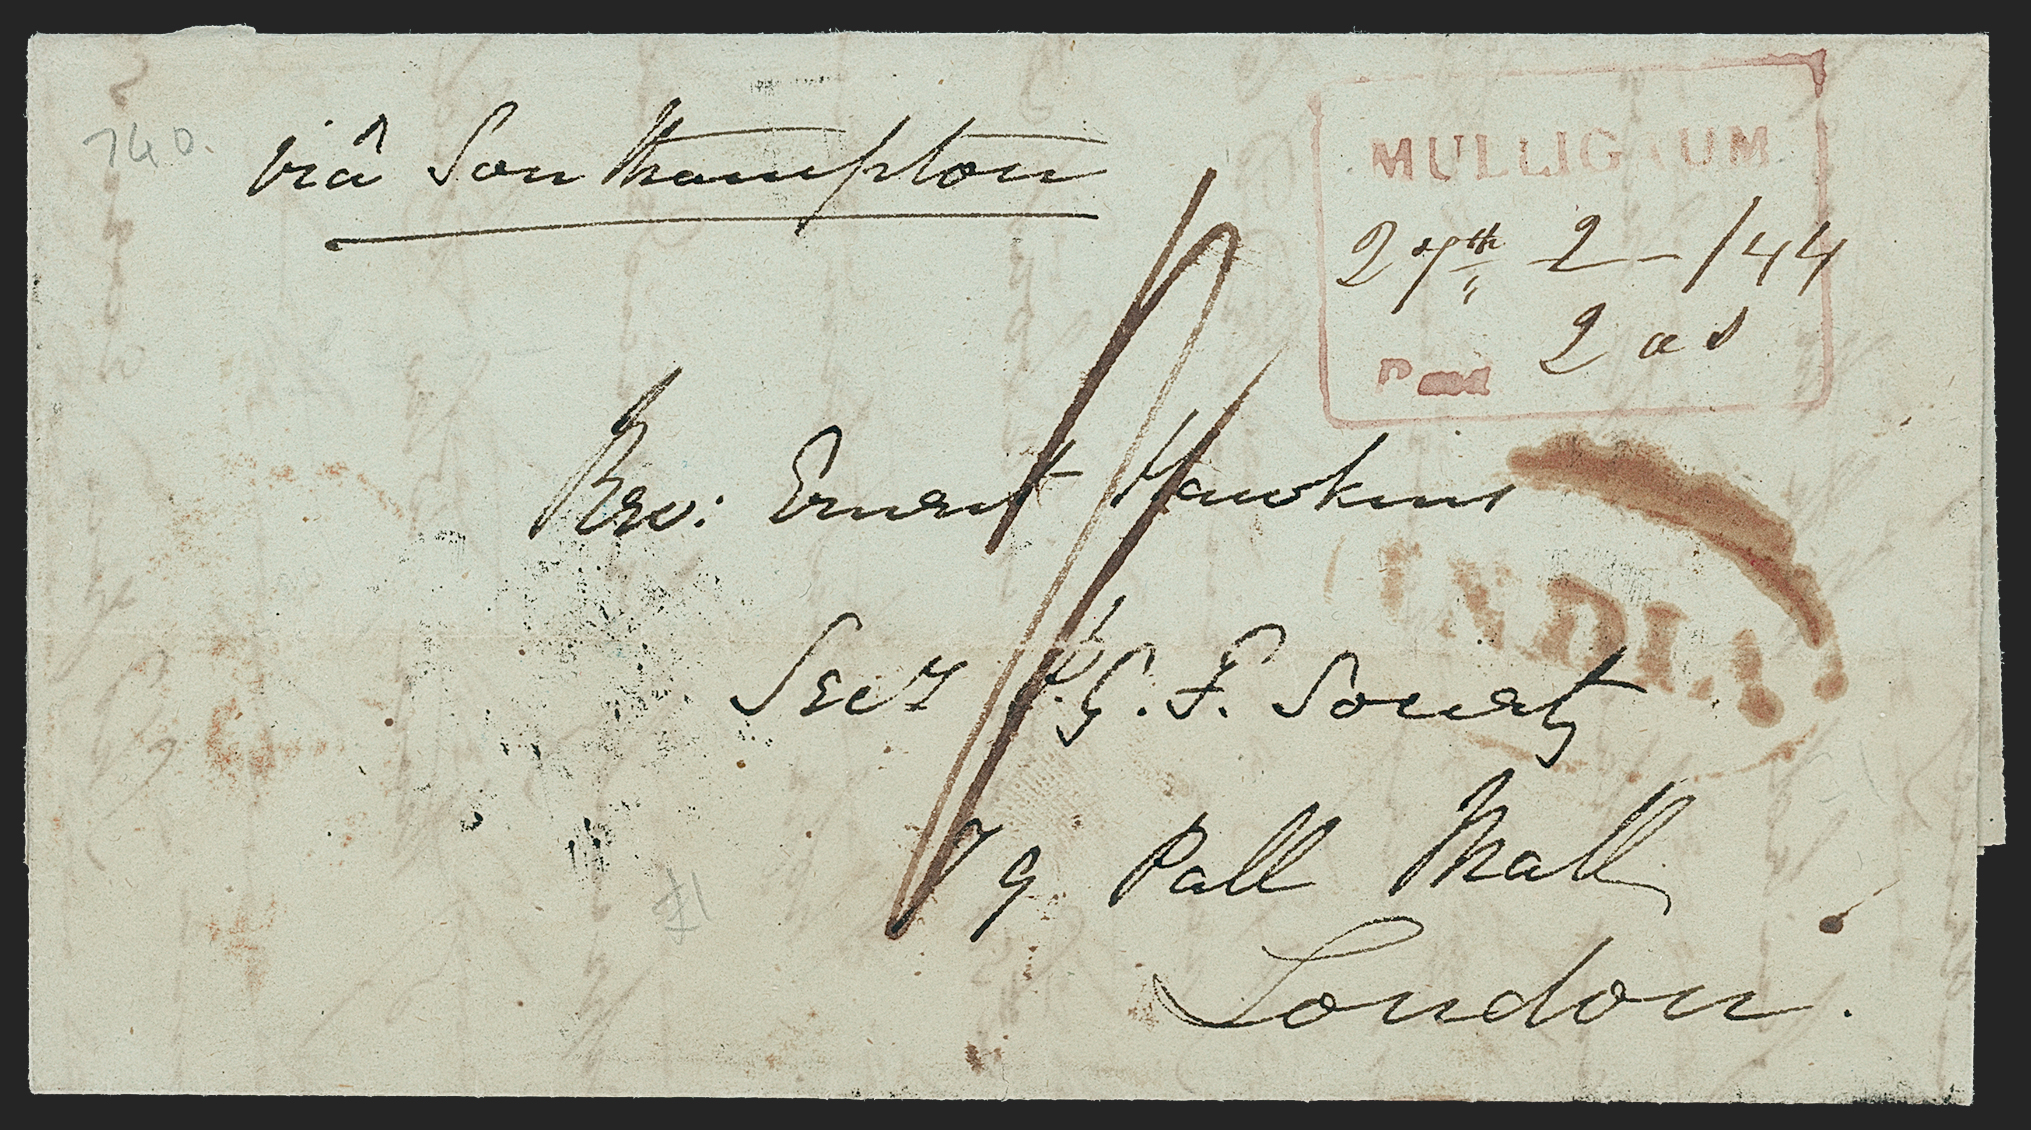 740.
viâ Southampton
MULLIGAUM
27th 2 - /44
Paid 2 as
1/
Rev: Ernest Hawkins
INDIA
Secy P. G. F. Society
79 Pall Mall
London.
£1